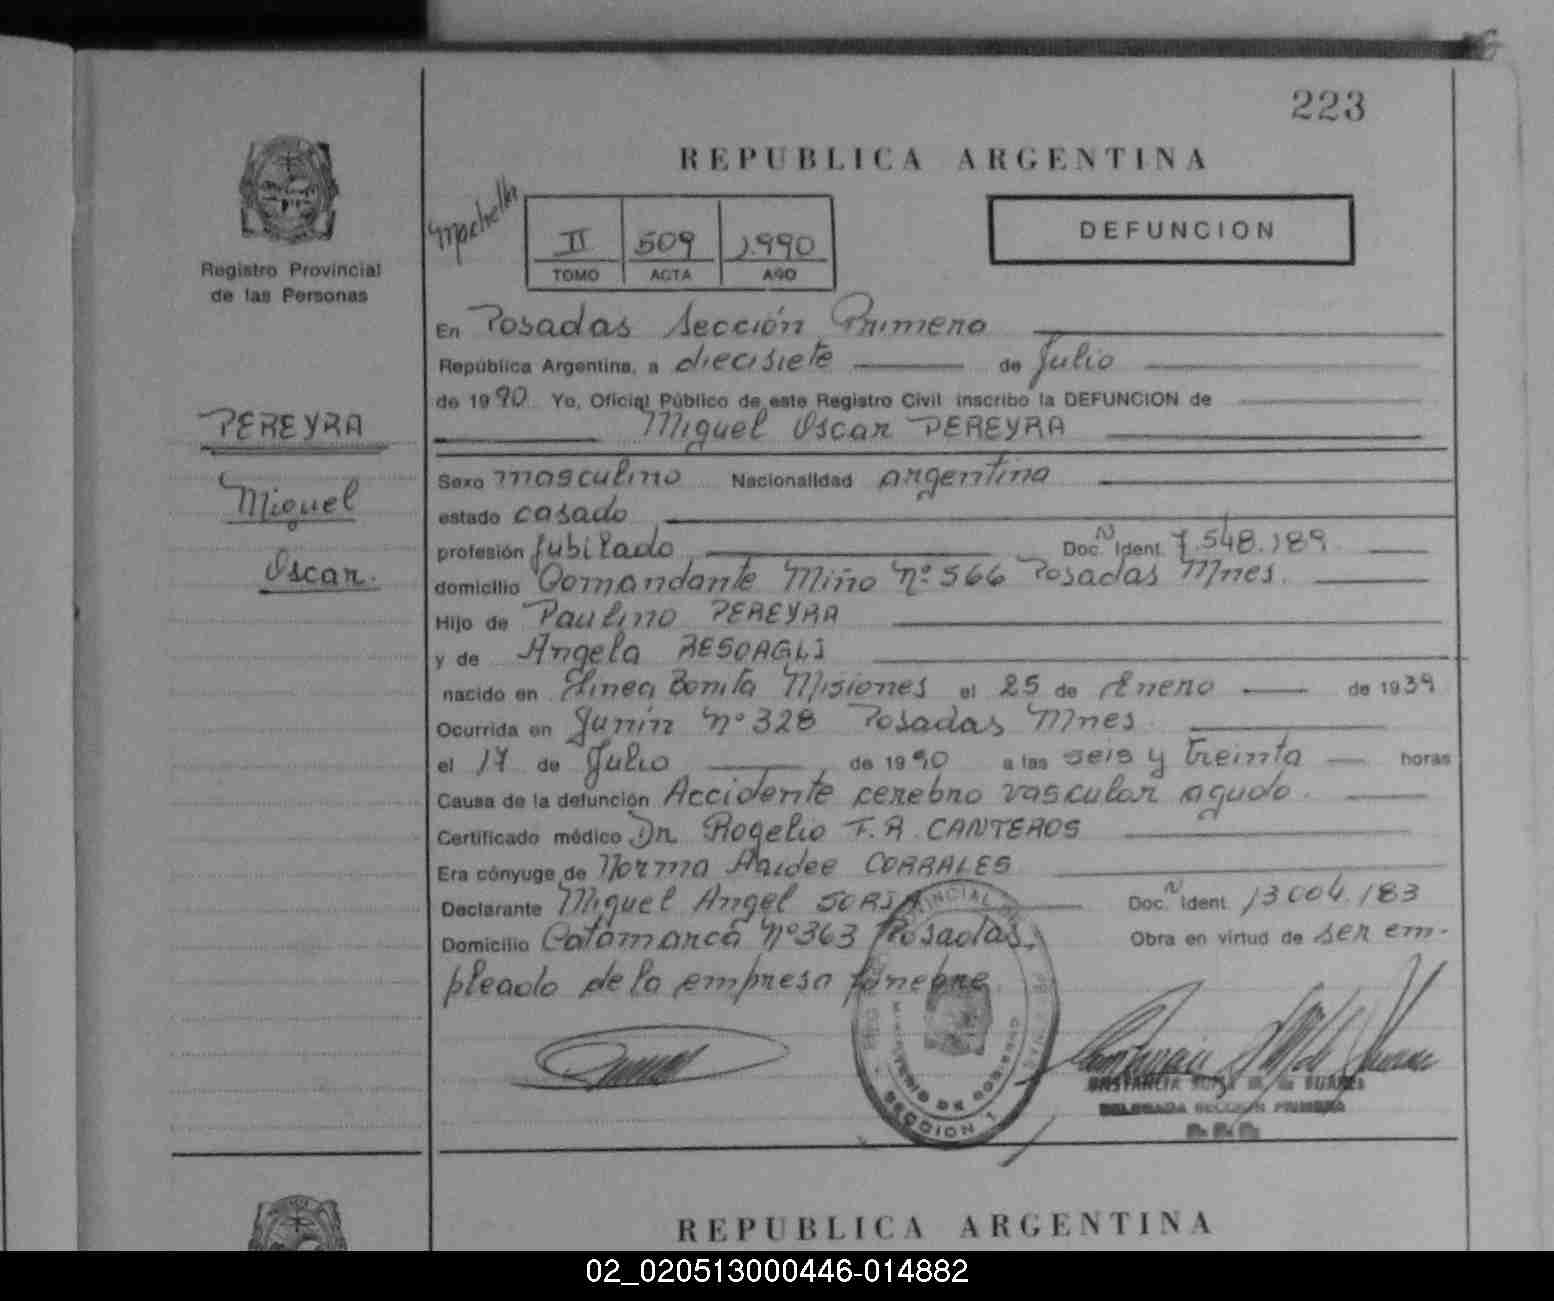 223
REPUBLICA ARGENTINA
II 509 1.990
TOMO ACTA AÑO
DEFUNCION
Registro Provincial
de las Personas
PEREYRA
Miguel
Oscar.
En Posadas Sección Primera
República Argentina, a diecisiete de Julio
de 1990 Yo, Oficial Público de este Registro Civil inscribo la DEFUNCION de
Miguel Oscar PEREYRA
Sexo masculino Nacionalidad argentina
estado casado
profesión Jubilado Doc. N Ident. 7.548.189
domicilio Comandante Miño Nº 566 Posadas Mnes.
Hijo de Paulino PEREYRA
y de Angela RESOAGLI
nacido en Linea Bonita Misiones el 25 de Enero de 1939
Ocurrida en Junin Nº 328 Posadas Mnes.
el 17 de Julio de 1990 a las seis y treinta horas
Causa de la defunción Accidente cerebro vascular agudo.
Certificado médico Dr. Rogelio F. A. CANTEROS
Era cónyuge de Norma Haidee CORRALES
Declarante Miguel Angel SORIA Doc. N Ident. 13 004.183
Domicilio Catamarca Nº 363 Posadas. Obra en virtud de ser em-
pleado de la empresa funebre.
MINISTERIO DE GOBIERNO
SECCION 1
DELEGADA SECCION PRIMERA
REPUBLICA ARGENTINA
02_020513000446-014882